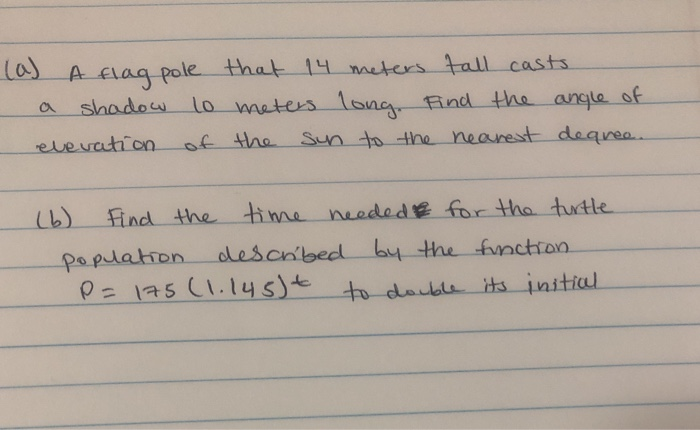 (a) A flag pole that 14 meters tall casts
a shadow 10 meters long. Find the angle of
elevation of the sun to the nearest degree.
(b) Find the time needed for the turtle
population described by the function
P = 175 (1.145)^t to double its initial